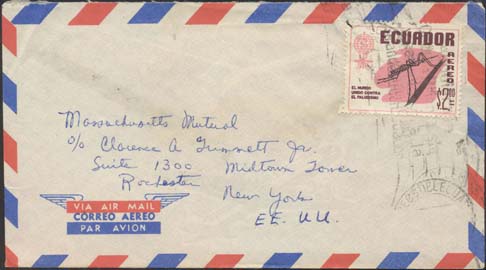 ECUADOR
AEREO
EL MUNDO
UNIDO CONTRA
EL PALUDISMO
Massachusetts Mutual
c/o Clarence A Jr.
Suite 1300 Midtown Tower
Rochester
New York
EE. UU.
VIA AIR MAIL
CORREO AEREO
PAR AVION